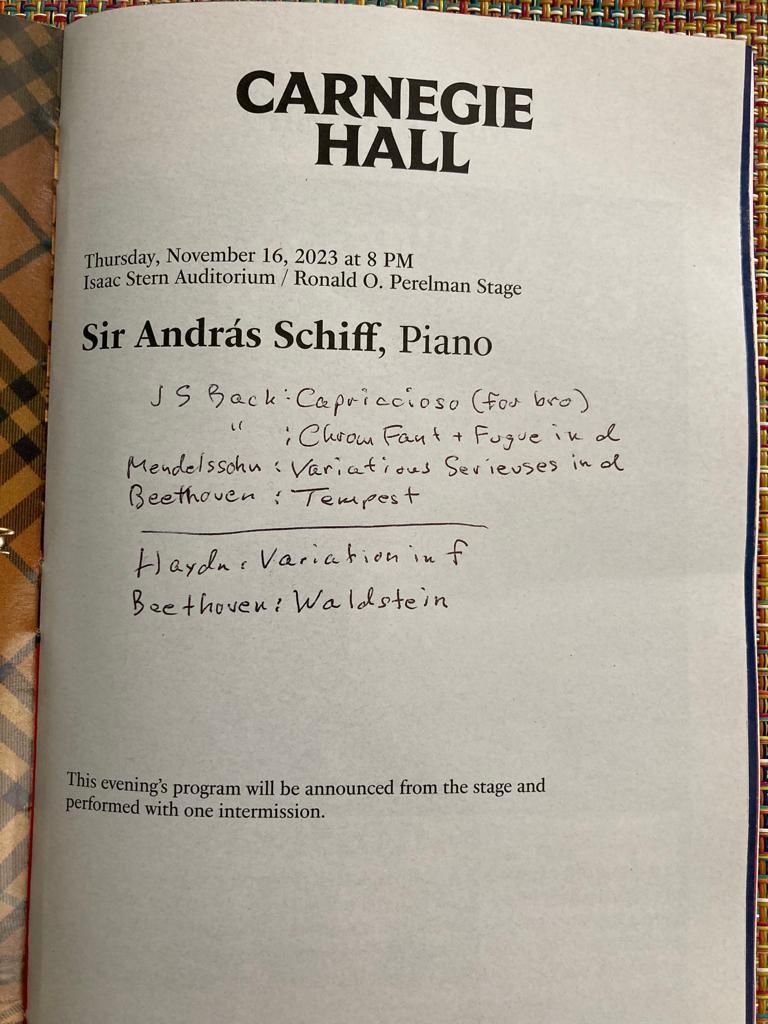 CARNEGIE
HALL
Thursday, November 16, 2023 at 8 PM
Isaac Stern Auditorium / Ronald O. Perelman Stage
Sir András Schiff, Piano
J S Bach : Capriccioso (for bro)
" : Chrom Fant + Fugue in d
Mendelssohn : Variations Serieuses in d
Beethoven : Tempest
Haydn : Variation in f
Beethoven : Waldstein
This evening's program will be announced from the stage and
performed with one intermission.